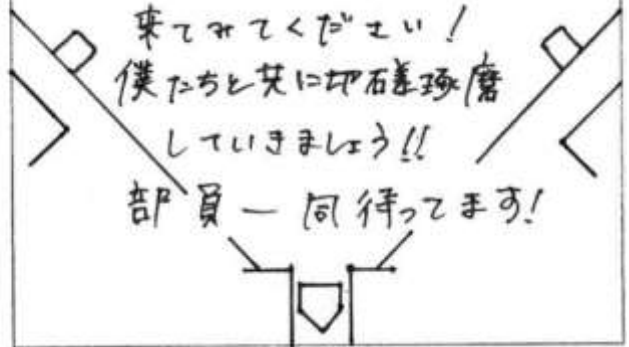 来てみてください!
僕たちと共に切磋琢磨
していきましょう!!
部員一同待ってます!